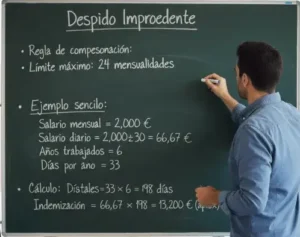 Despido Improedente
• Regla de compesonación:
• Límite máximo: 24 mensualidades
• Ejemplo sencilo:
Salario mensual = 2,000 €
Salario diario = 2,000±30 = 66,67 €
Años trabajados = 6
Días por ano = 33
• Cálculo: Dístales=33 × 6 = 198 días
Indemización = 66,67 × 198 = 13,200 €